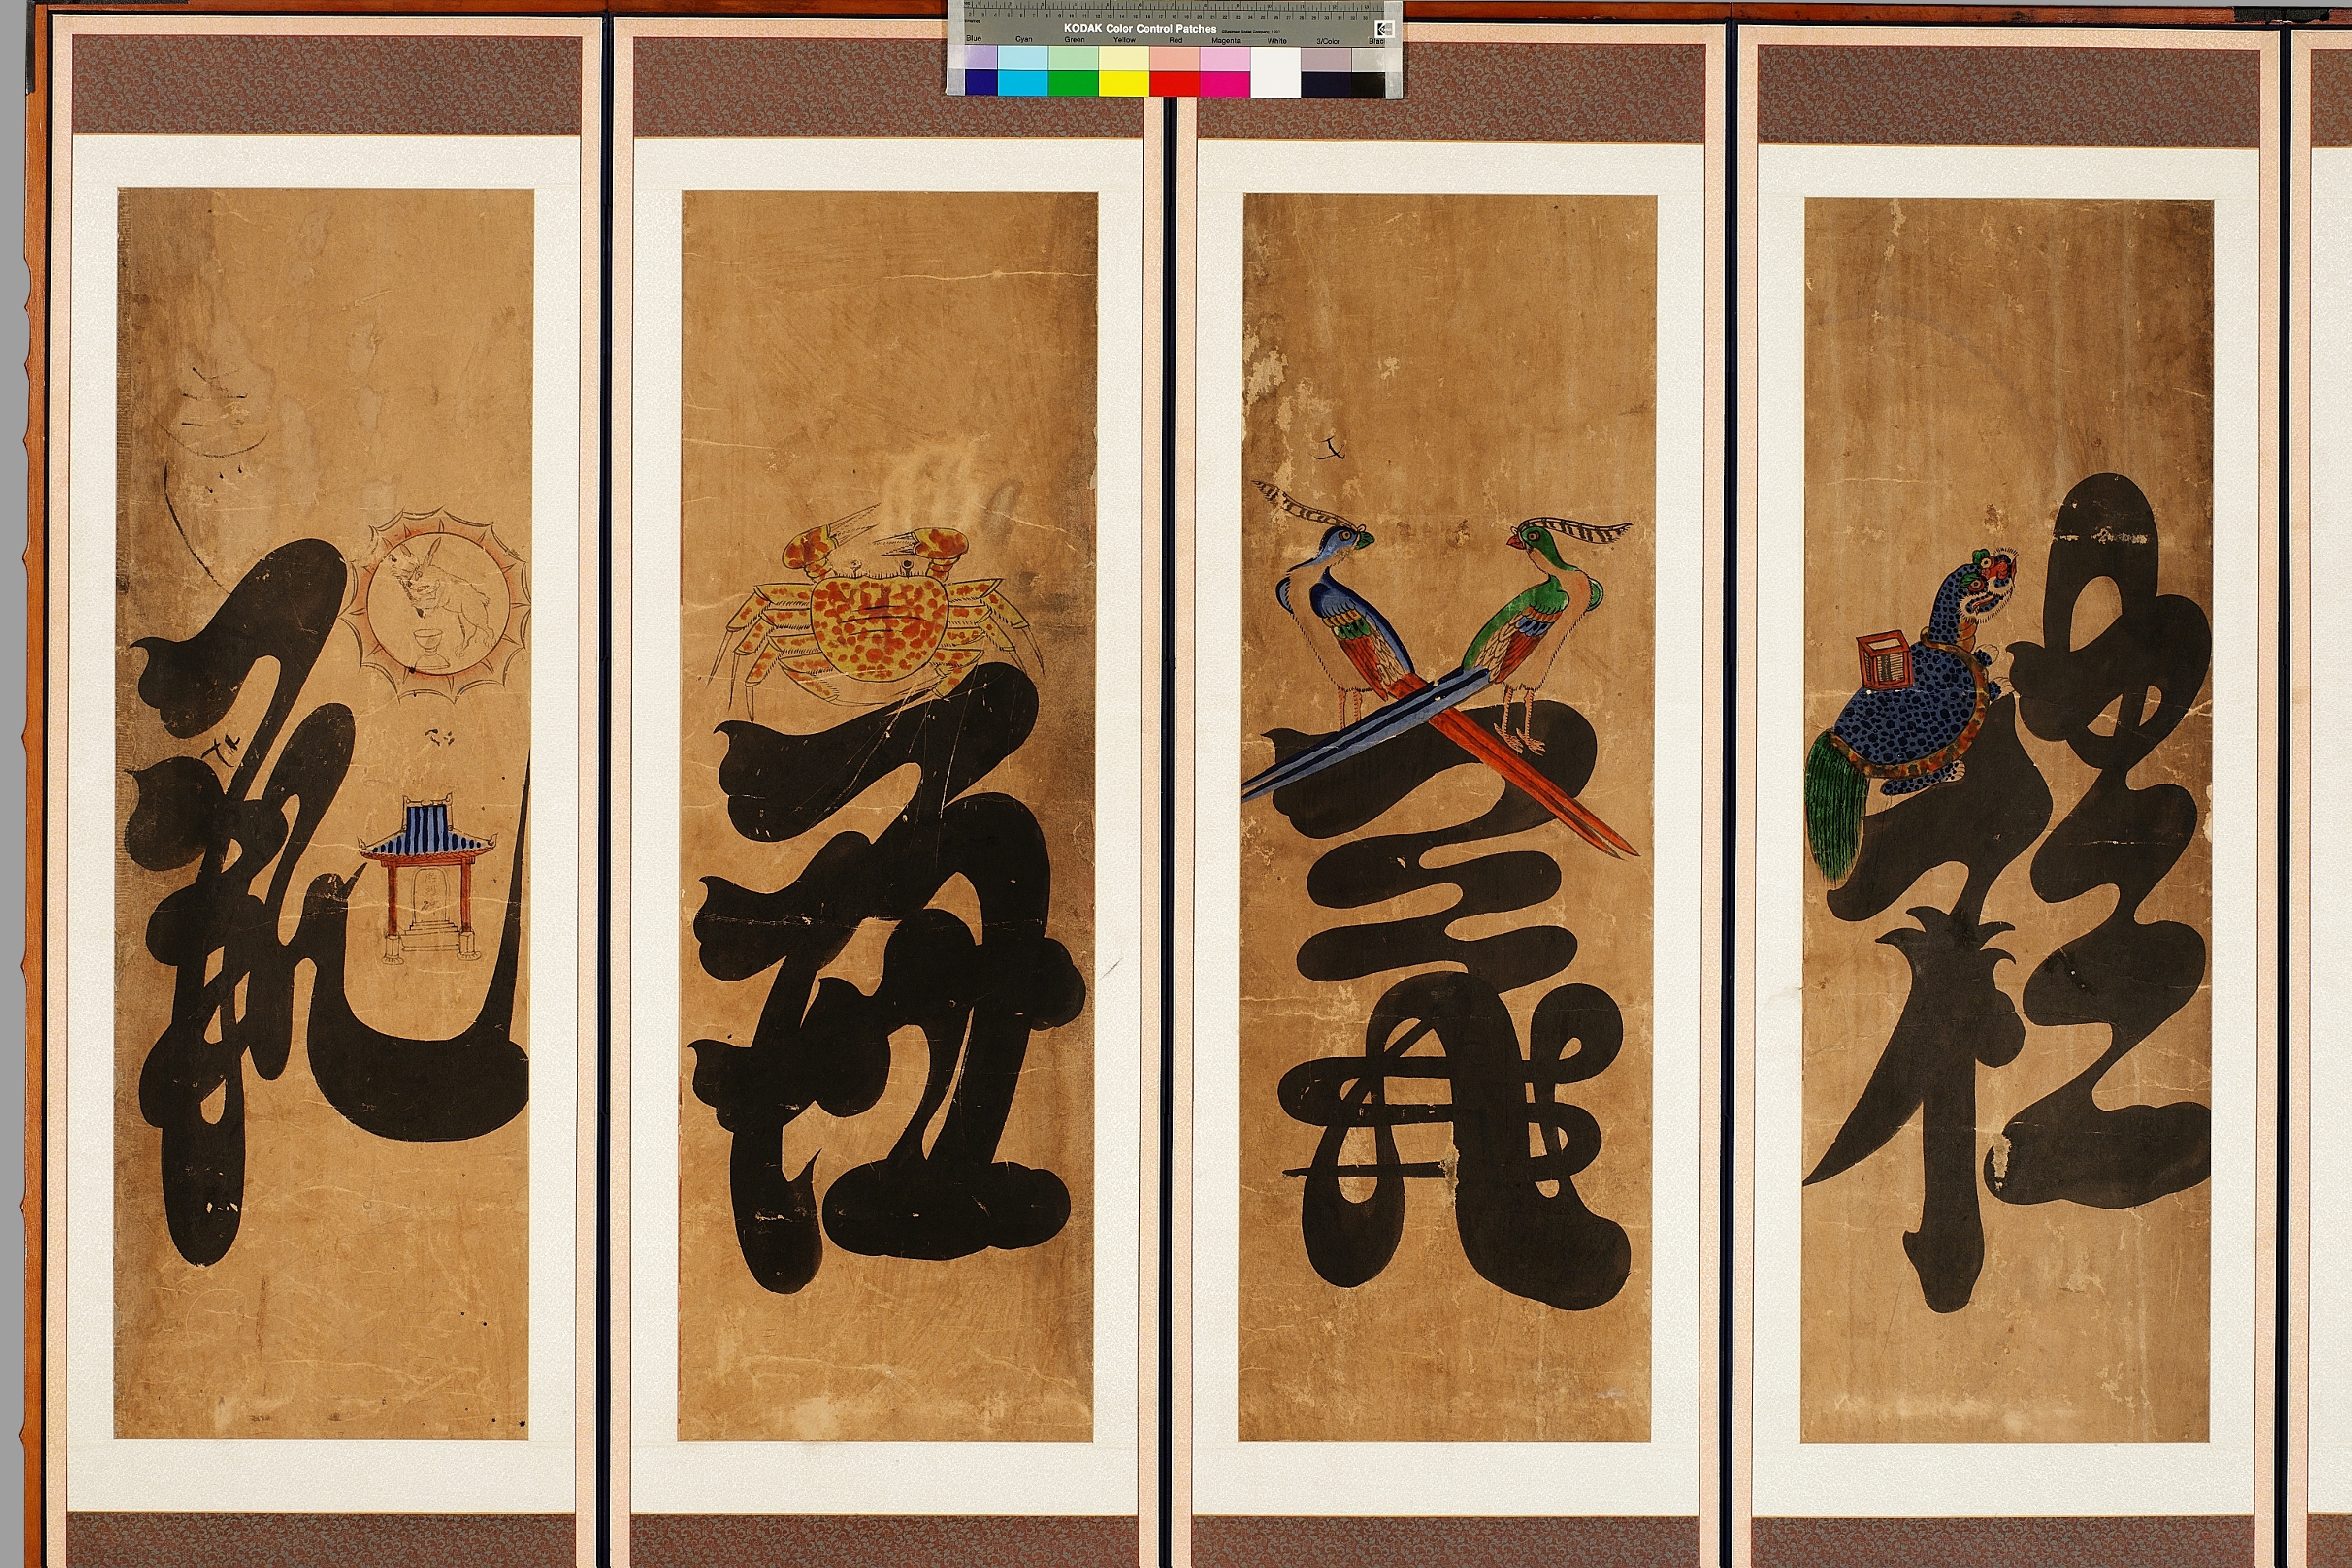 KODAK Color Control Patches
Blue Cyan Green Yellow Red Magenta White 3/Color Black
禮
義
廉
恥